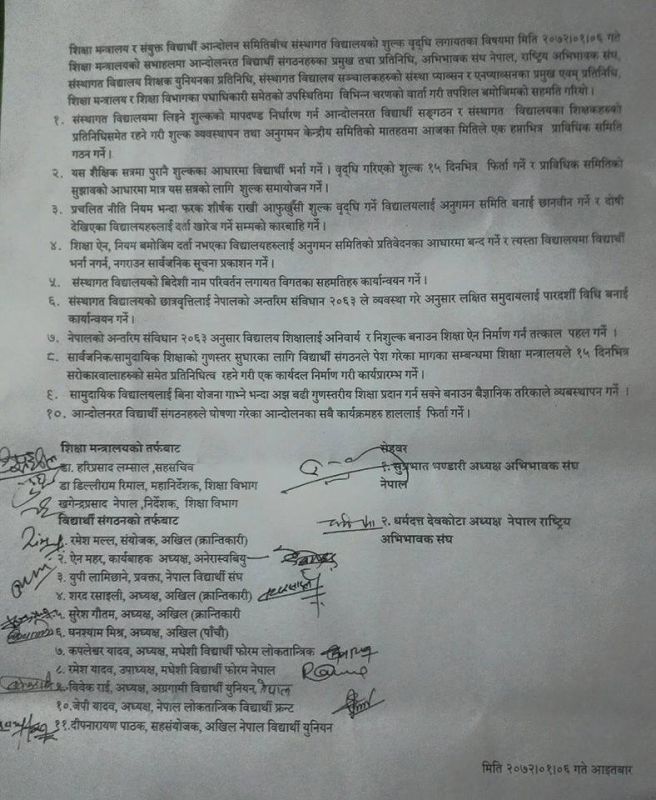 शिक्षा मन्त्रालय र संयुक्त विद्यार्थी आन्दोलन समितिबीच संस्थागत विद्यालयको शुल्क वृद्धि लगायतका विषयमा मिति २०७२।०१।०६ गते
शिक्षा मन्त्रालयको सभाहलमा आन्दोलनरत विद्यार्थी संगठनहरुका प्रमुख तथा प्रतिनिधि, अभिभावक संघ नेपाल, राष्ट्रिय अभिभावक संघ,
संस्थागत विद्यालय शिक्षक युनियनका प्रतिनिधि, संस्थागत विद्यालय सञ्चालकहरुको संस्था प्याब्सन र एनप्याब्सनका प्रमुख एवम् प्रतिनिधि,
शिक्षा मन्त्रालय र शिक्षा विभागका पधाधिकारी समेतको उपस्थितिमा विभिन्न चरणको वार्ता गरी तपशिल बमोजिमको सहमति गरियो ।
१. संस्थागत विद्यालयमा लिइने शुल्कको मापदण्ड निर्धारण गर्न आन्दोलनरत विद्यार्थी सङ्गठन र संस्थागत विद्यालयका शिक्षकहरुको
प्रतिनिधिसमेत रहने गरी शुल्क व्यवस्थापन तथा अनुगमन केन्द्रीय समितिको मातहतमा आजका मितिले एक हप्ताभित्र प्राविधिक समिति
गठन गर्ने ।
२. यस शैक्षिक सत्रमा पुरानै शुल्कका आधारमा विद्यार्थी भर्ना गर्ने । वृद्धि गरिएको शुल्क १५ दिनभित्र फिर्ता गर्ने र प्राविधिक समितिको
सुझावको आधारमा मात्र यस सत्रको लागि शुल्क समायोजन गर्ने ।
३. प्रचलित नीति नियम भन्दा फरक शीर्षक राखी आफुखुसी शुल्क वृद्धि गर्ने विद्यालयलाई अनुगमन समिति बनाई छानवीन गर्ने र दोषी
देखिएका विद्यालयहरुलाई दर्ता खारेज गर्ने सम्मको कारबाहि गर्ने ।
४. शिक्षा ऐन, नियम बमोजिम दर्ता नभएका विद्यालयहरुलाई अनुगमन समितिको प्रतिवेदनका आधारमा बन्द गर्ने र त्यस्ता विद्यालयमा विद्यार्थी
भर्ना नगर्न, नगराउन सार्वजनिक सूचना प्रकाशन गर्ने ।
५. संस्थागत विद्यालयको बिदेशी नाम परिवर्तन लगायत विगतका सहमतिहरु कार्यान्वयन गर्ने ।
६. संस्थागत विद्यालयको छात्रवृत्तिलाई नेपालको अन्तरिम संविधान २०६३ ले व्यवस्था गरे अनुसार लक्षित समुदायलाई पारदर्शी विधि बनाई
कार्यान्वयन गर्ने ।
७. नेपालको अन्तरिम संविधान २०६३ अनुसार विद्यालय शिक्षालाई अनिवार्य र निशुल्क बनाउन शिक्षा ऐन निर्माण गर्न तत्काल पहल गर्ने ।
८. सार्वजनिक/सामुदायिक शिक्षाको गुणस्तर सुधारका लागि विद्यार्थी संगठनले पेश गरेका मागका सम्बन्धमा शिक्षा मन्त्रालयले १५ दिनभित्र
सरोकारवालाहरुको समेत प्रतिनिधित्व रहने गरी एक कार्यदल निर्माण गरी कार्यप्रारम्भ गर्ने ।
९. सामुदायिक विद्यालयलाई बिना योजना गाभ्ने भन्दा अझ बढी गुणस्तरीय शिक्षा प्रदान गर्न सक्ने बनाउन बैज्ञानिक तरिकाले व्यबस्थापन गर्ने ।
१०. आन्दोलनरत विद्यार्थी संगठनहरुले घोषणा गरेका आन्दोलनका सबै कार्यक्रमहरु हाललाई फिर्ता गर्ने ।
शिक्षा मन्त्रालयको तर्फबाट
डा. हरिप्रसाद लम्साल ,सहसचिव
डा डिल्लीराम रिमाल, महानिर्देशक, शिक्षा विभाग
खगेन्द्रप्रसाद नेपाल ,निर्देशक, शिक्षा विभाग
विद्यार्थी संगठनको तर्फबाट
१. रमेश मल्ल, संयोजक, अखिल (क्रान्तिकारी)
२. ऐन महर, कार्यबाहक अध्यक्ष, अनेरास्वबियु
३. युपी लामिछाने, प्रवक्ता, नेपाल विद्यार्थी संघ
४. शरद रसाइली, अध्यक्ष, अखिल (क्रान्तिकारी)
५. सुरेश गौतम, अध्यक्ष, अखिल (क्रान्तिकारी
६. घनश्याम मिश्र, अध्यक्ष, अखिल (पाँचौ)
७. कपलेश्वर यादव, अध्यक्ष, मधेशी विद्यार्थी फोरम लोकतान्त्रिक
८. रमेश यादव, उपाध्यक्ष, मधेशी विद्यार्थी फोरम नेपाल
९. विवेक राई, अध्यक्ष, अग्रगामी विद्यार्थी युनियन, नेपाल
१०. जेपी यादव, अध्यक्ष, नेपाल लोकतान्त्रिक विद्यार्थी फ्रन्ट
११. दीपनारायण पाठक, सहसंयोजक, अखिल नेपाल विद्यार्थी युनियन
रोहवर
१. सुप्रभात भण्डारी अध्यक्ष अभिभावक संघ
नेपाल
२. धर्मदत्त देवकोटा अध्यक्ष नेपाल राष्ट्रिय
अभिभावक संघ
मिति २०७२।०१।०६ गते आइतबार